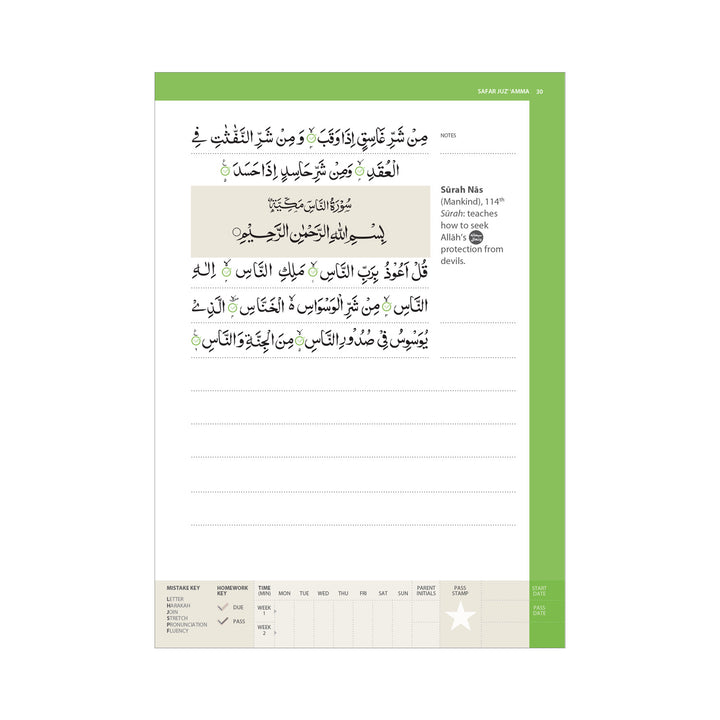 SAFAR JUZ' 'AMMA 30
مِنْ شَرِّ غَاسِقٍ اِذَا وَقَبَ ۙ وَ مِنْ شَرِّ النَّفّٰثٰتِ فِي
الْعُقَدِ ۙ وَمِنْ شَرِّ حَاسِدٍ اِذَا حَسَدَ
سُوْرَةُ النَّاسِ مَكِّيَّةٌ
بِسْمِ اللهِ الرَّحْمٰنِ الرَّحِيْمِ
قُلْ اَعُوْذُ بِرَبِّ النَّاسِ ۙ مَلِكِ النَّاسِ ۙ اِلٰهِ
النَّاسِ ۙ مِنْ شَرِّ الْوَسْوَاسِ ەۙ الْخَنَّاسِ ۙ الَّذِيْ
يُوَسْوِسُ فِيْ صُدُوْرِ النَّاسِ ۙ مِنَ الْجِنَّةِ وَالنَّاسِ
NOTES
Sūrah Nās
(Mankind), 114th
Sūrah: teaches
how to seek
Allāh's
protection from
devils.
MISTAKE KEY
LETTER
HARAKAH
JOIN
STRETCH
PRONUNCIATION
FLUENCY
HOMEWORK KEY
DUE
PASS
TIME (MIN) MON TUE WED THU FRI SAT SUN PARENT INITIALS PASS STAMP START DATE
WEEK 1
PASS DATE
WEEK 2